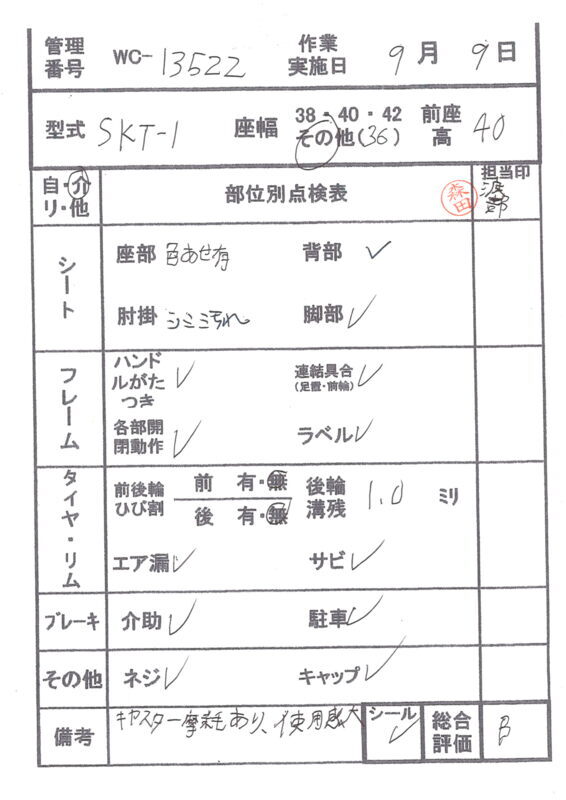 管理番号 WC-13522 作業実施日 9月9日
型式 SKT-1 座幅 38・40・42 その他(36) 前座高 40
自・介 リ・他 部位別点検表 担当印
森田 渡部
シート 座部 色あせ有 背部 ✓
肘掛 シミミ汚れ 脚部 ✓
フレーム ハンドルがたつき ✓ 連結具合(足置・前輪) ✓
各部開閉動作 ✓ ラベル ✓
タイヤ・リム 前後輪ひび割 前 有・無 後 有・無 後輪溝残 1.0 ミリ
エア漏 ✓ サビ ✓
ブレーキ 介助 ✓ 駐車 ✓
その他 ネジ ✓ キャップ ✓
備考 キャスター摩耗あり、使用感大 シール ✓ 総合評価 B